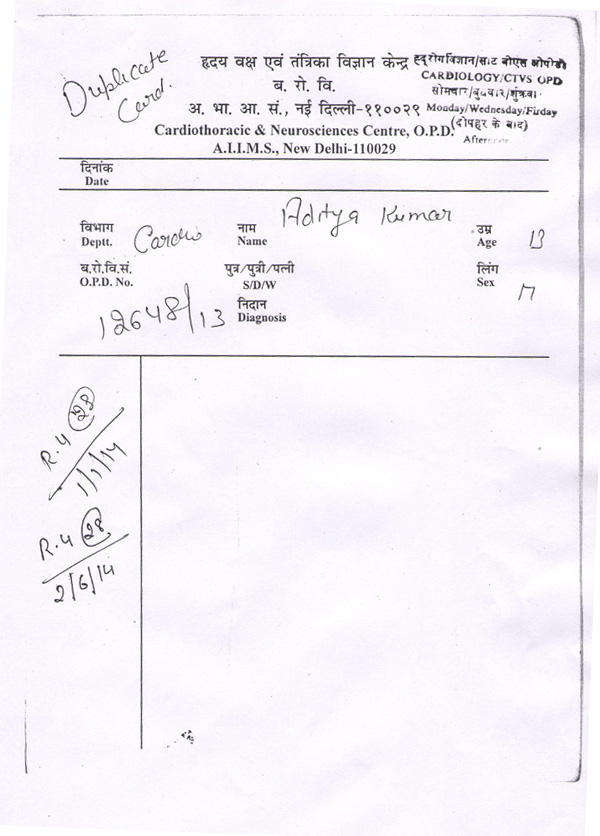 Duplicate
Card.
हृदय वक्ष एवं तंत्रिका विज्ञान केन्द्र
ब. रो. वि.
अ. भा. आ. सं., नई दिल्ली-११००२९
Cardiothoracic & Neurosciences Centre, O.P.D.
A.I.I.M.S., New Delhi-110029
CARDIOLOGY/CTVS OPD
सोमवार/बुधवार/शुक्रवा
Monday/Wednesday/Firday
(दोपहर के बाद)
दिनांक
Date
विभाग
Deptt. Cardio
नाम
Name Aditya Kumar
उम्र
Age 13
ब.रो.वि.सं.
O.P.D. No.
12648/13
पुत्र/पुत्री/पत्नी
S/D/W
लिंग
Sex M
निदान
Diagnosis
R.4 28
1/1/14
R.4 28
2/6/14